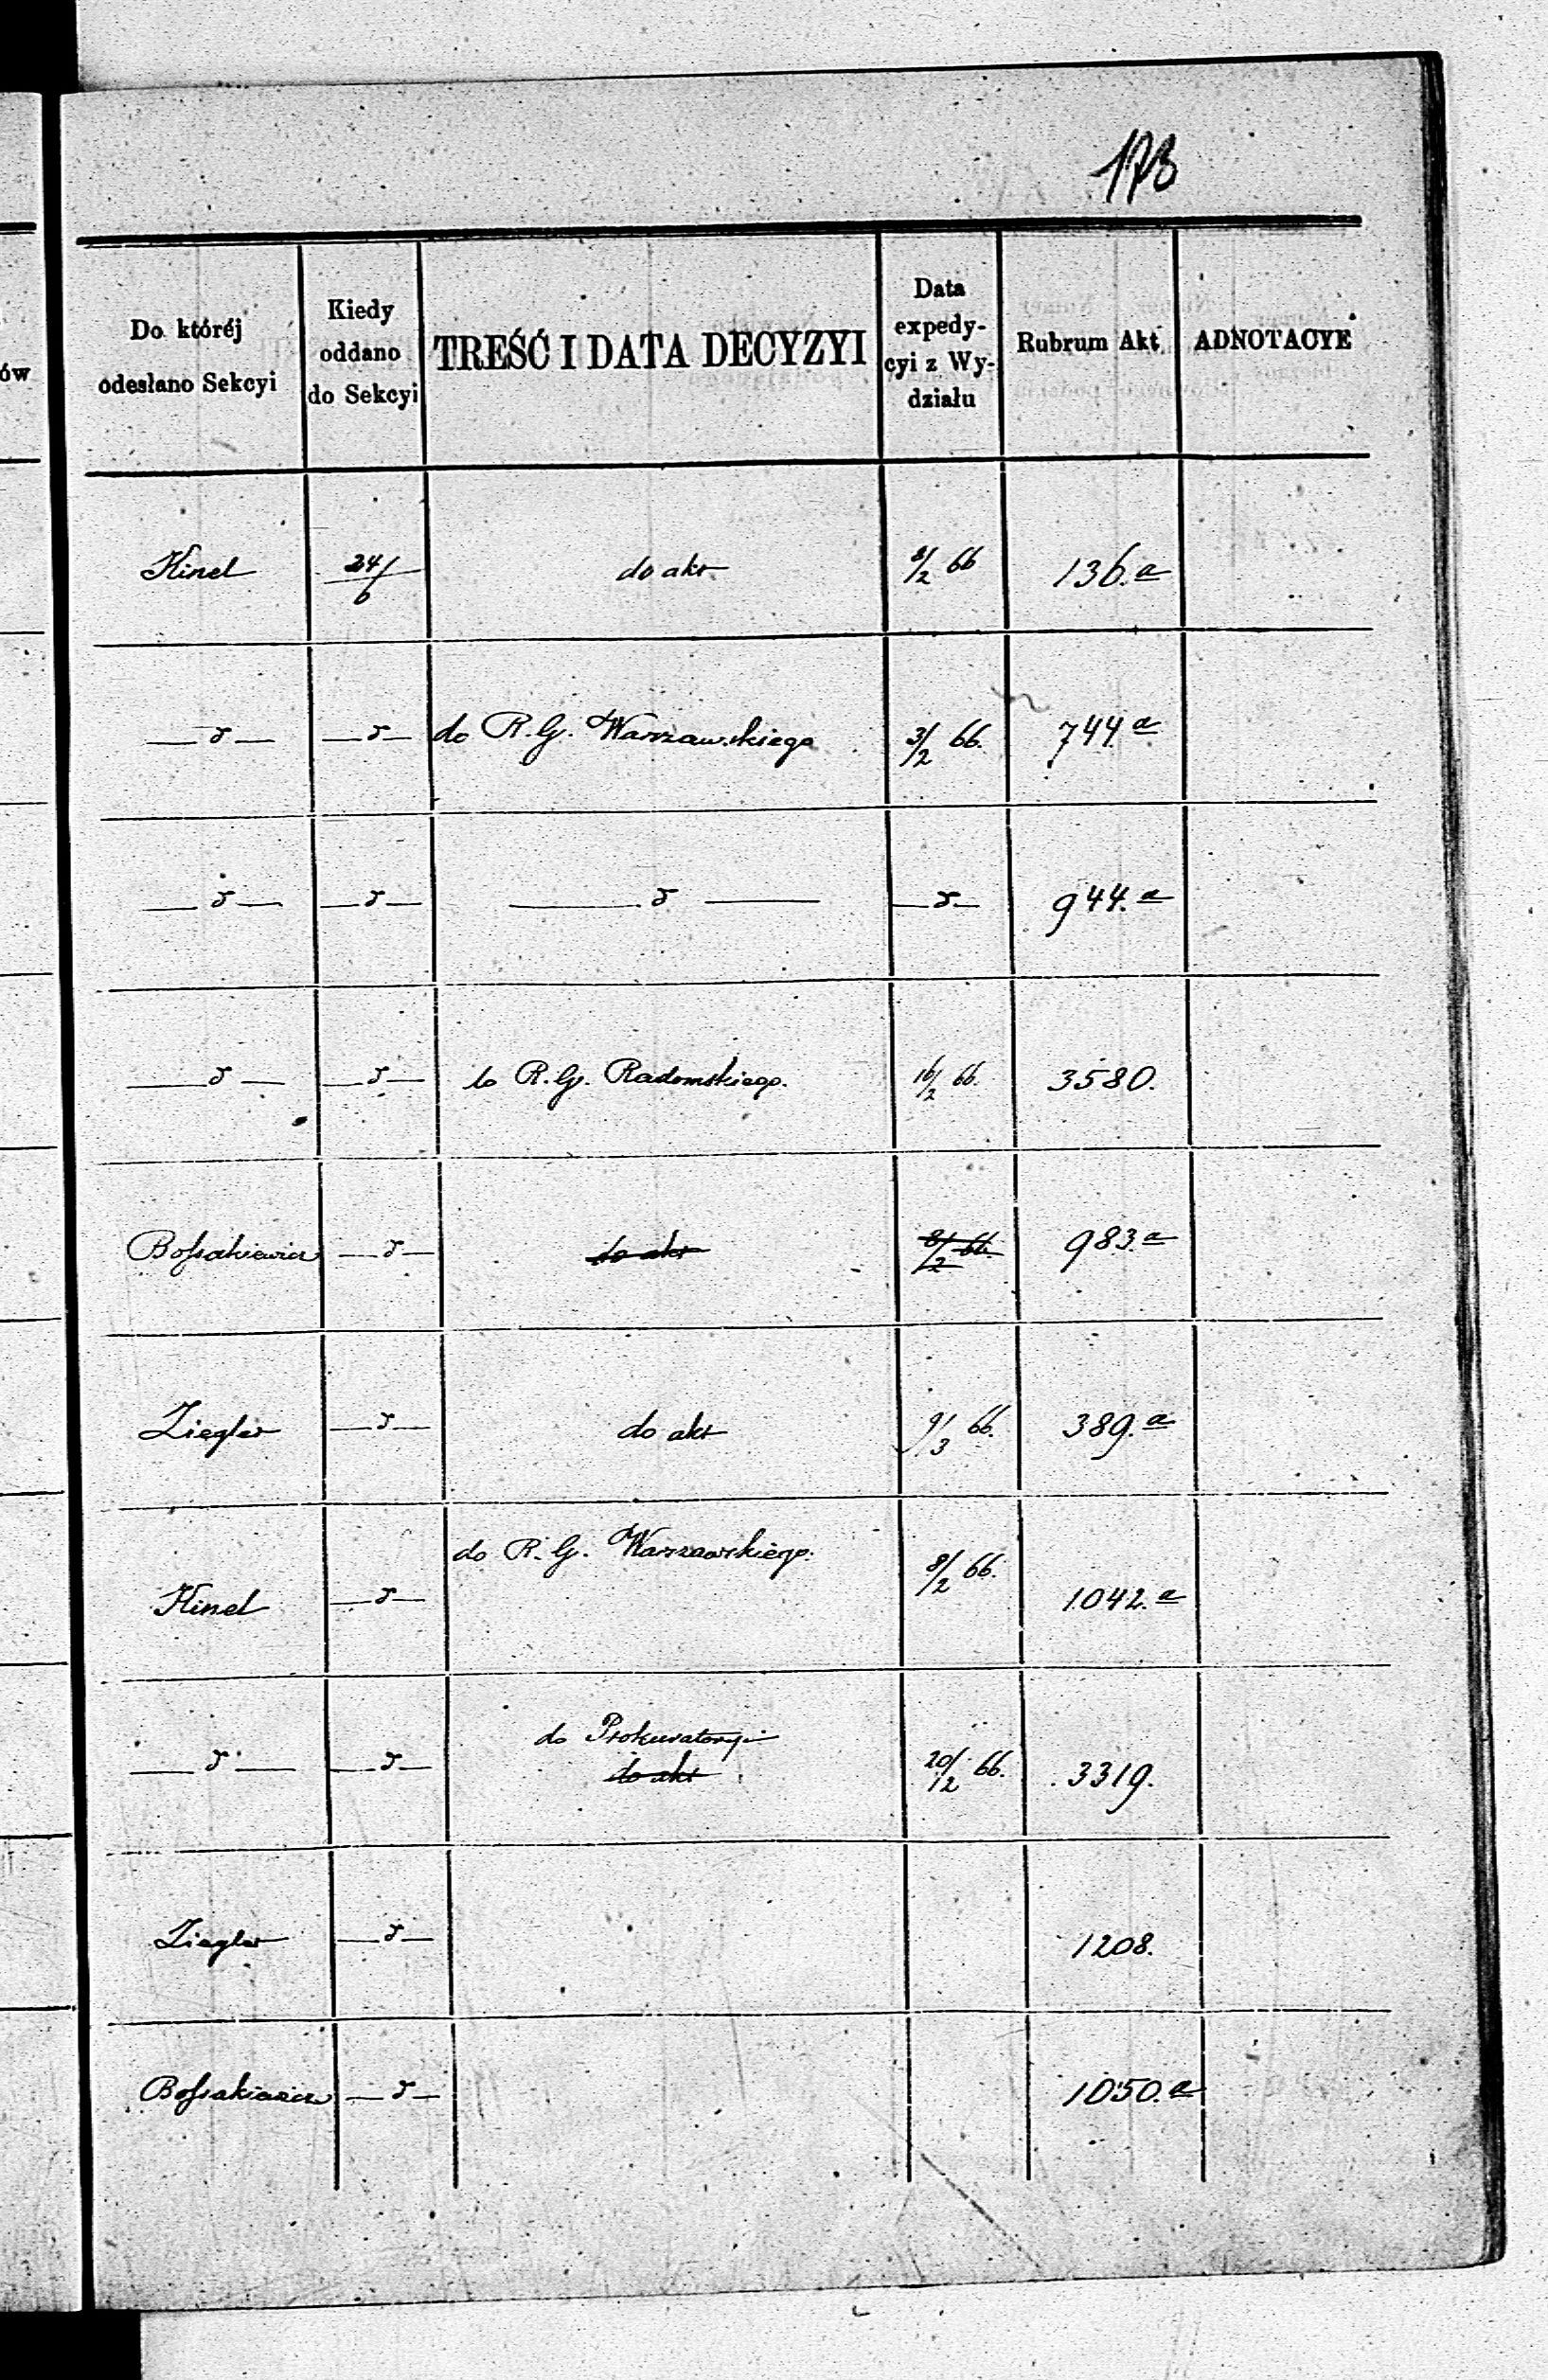 173
ów
Do któréj odesłano Sekcyi | Kiedy oddano do Sekcyi | TREŚĆ I DATA DECYZYI | Data expedy-cyi z Wy-działu | Rubrum Akt | ADNOTACYE
Kinel | 24/6 | do akt | 8/2 66 | 136.a
—d— | —d— | do R. G. Warszawskiego | 3/2 66. | 744.a
—d— | —d— | —d— | —d— | 944.a
—d— | —d— | do R. G. Radomskiego. | 16/2 66. | 3580.
Bossakiewicz | —d— | do akt | 8/2 66. | 983.a
Ziegler | —d— | do akt | 9/3 66. | 389.a
Kinel | —d— | do R. G. Warszawskiego. | 8/2 66. | 1042.a
—d— | —d— | do Prokuratoryi
do akt | 20/12 66. | 3319.
Ziegler | —d— | 1208.
Bossakiewicz | —d— | 1050.a